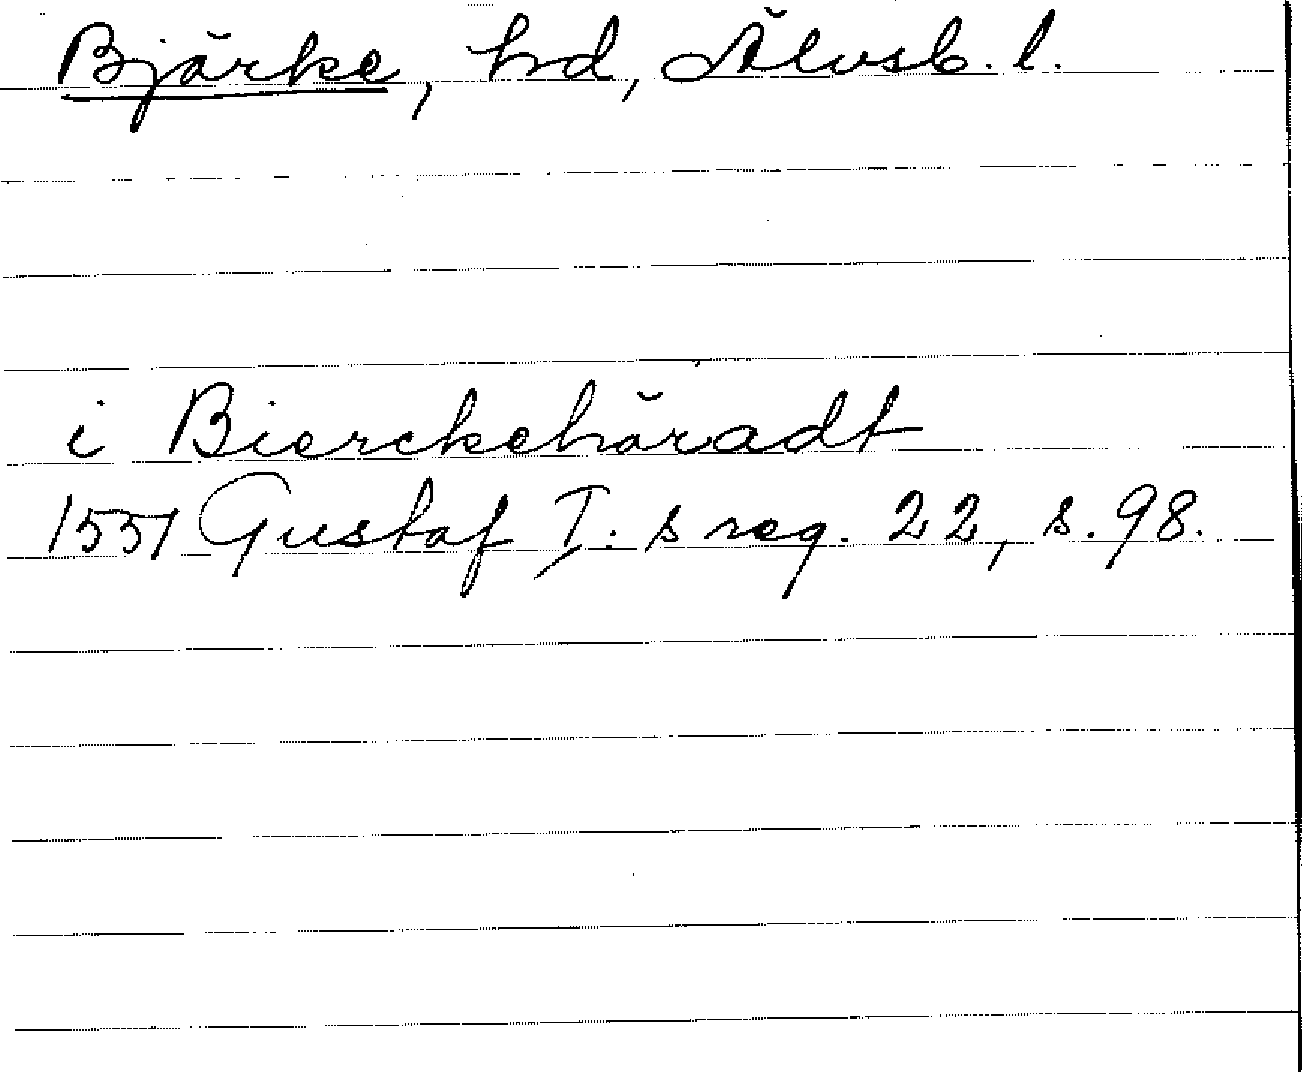 Bjärke, hd, Älvsb. l.
i Bierckehäradt
1551 Gustaf I:s reg. 22, s. 98.